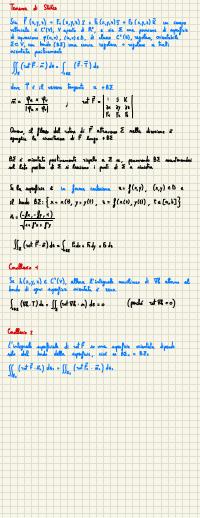 Teorema di Stokes
Sia F(x,y,z) = F₁(x,y,z) x + F₂(x,y,z) y + F₃(x,y,z) z un campo
vettoriale di C¹(V), V aperto di R³, e sia Σ una porzione di superficie
di equazione φ(u,v), (u,v) ∈ D, di classe C¹(V), regolare, orientabile
Σ ⊂ V, con bordo (∂Σ) una curva regolare o regolare a tratti
orientato positivamente
∬ (rot F · n) dσ = ∫ (F · T) ds
dove T è il versore tangente a ∂Σ
n = φu × φv / |φu × φv| ; rot F = | i j k | ∂x ∂y ∂z | F₁ F₂ F₃ |
Ovvero, il flusso del rotore di F attraverso Σ nella direzione n
eguaglia la circuitazione di F lungo ∂Σ
∂Σ è orientato positivamente rispetto a Σ se, percorrendo ∂Σ
dal lato positivo di Σ si lasciano i punti di Σ a sinistra
Se la superficie è in forma cartesiana z = f(x,y), (x,y) ∈ D e
il bordo ∂Σ: {x = x(t), y = y(t), z = f(x(t), y(t)), t ∈ [a,b]}
∬ (rot F · n) dσ = ∫ F₁dx + F₂dy + F₃dz
Corollario 1
al bordo di una superficie orientata è zero.
∫ (∇h · T) ds = ∬ (rot ∇h · n) dσ = 0 (perché rot ∇h = 0)
Corollario 2
L'integrale superficiale di rot F su una superficie orientata dipende
solo dal bordo della superficie, cioè se ∂Σ₁ = ∂Σ₂
∬ (rot F · n₁) dσ₁ = ∬ (rot F · n₂) dσ₂